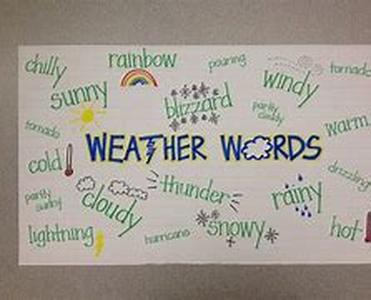 chilly
rainbow
pouring
windy
tornado
sunny
blizzard
partly
cloudy
tornado
warm
WEATHER WORDS
cold
drizzling
partly
sunny
thunder
rainy
cloudy
lightning
hurricane
snowy
hot